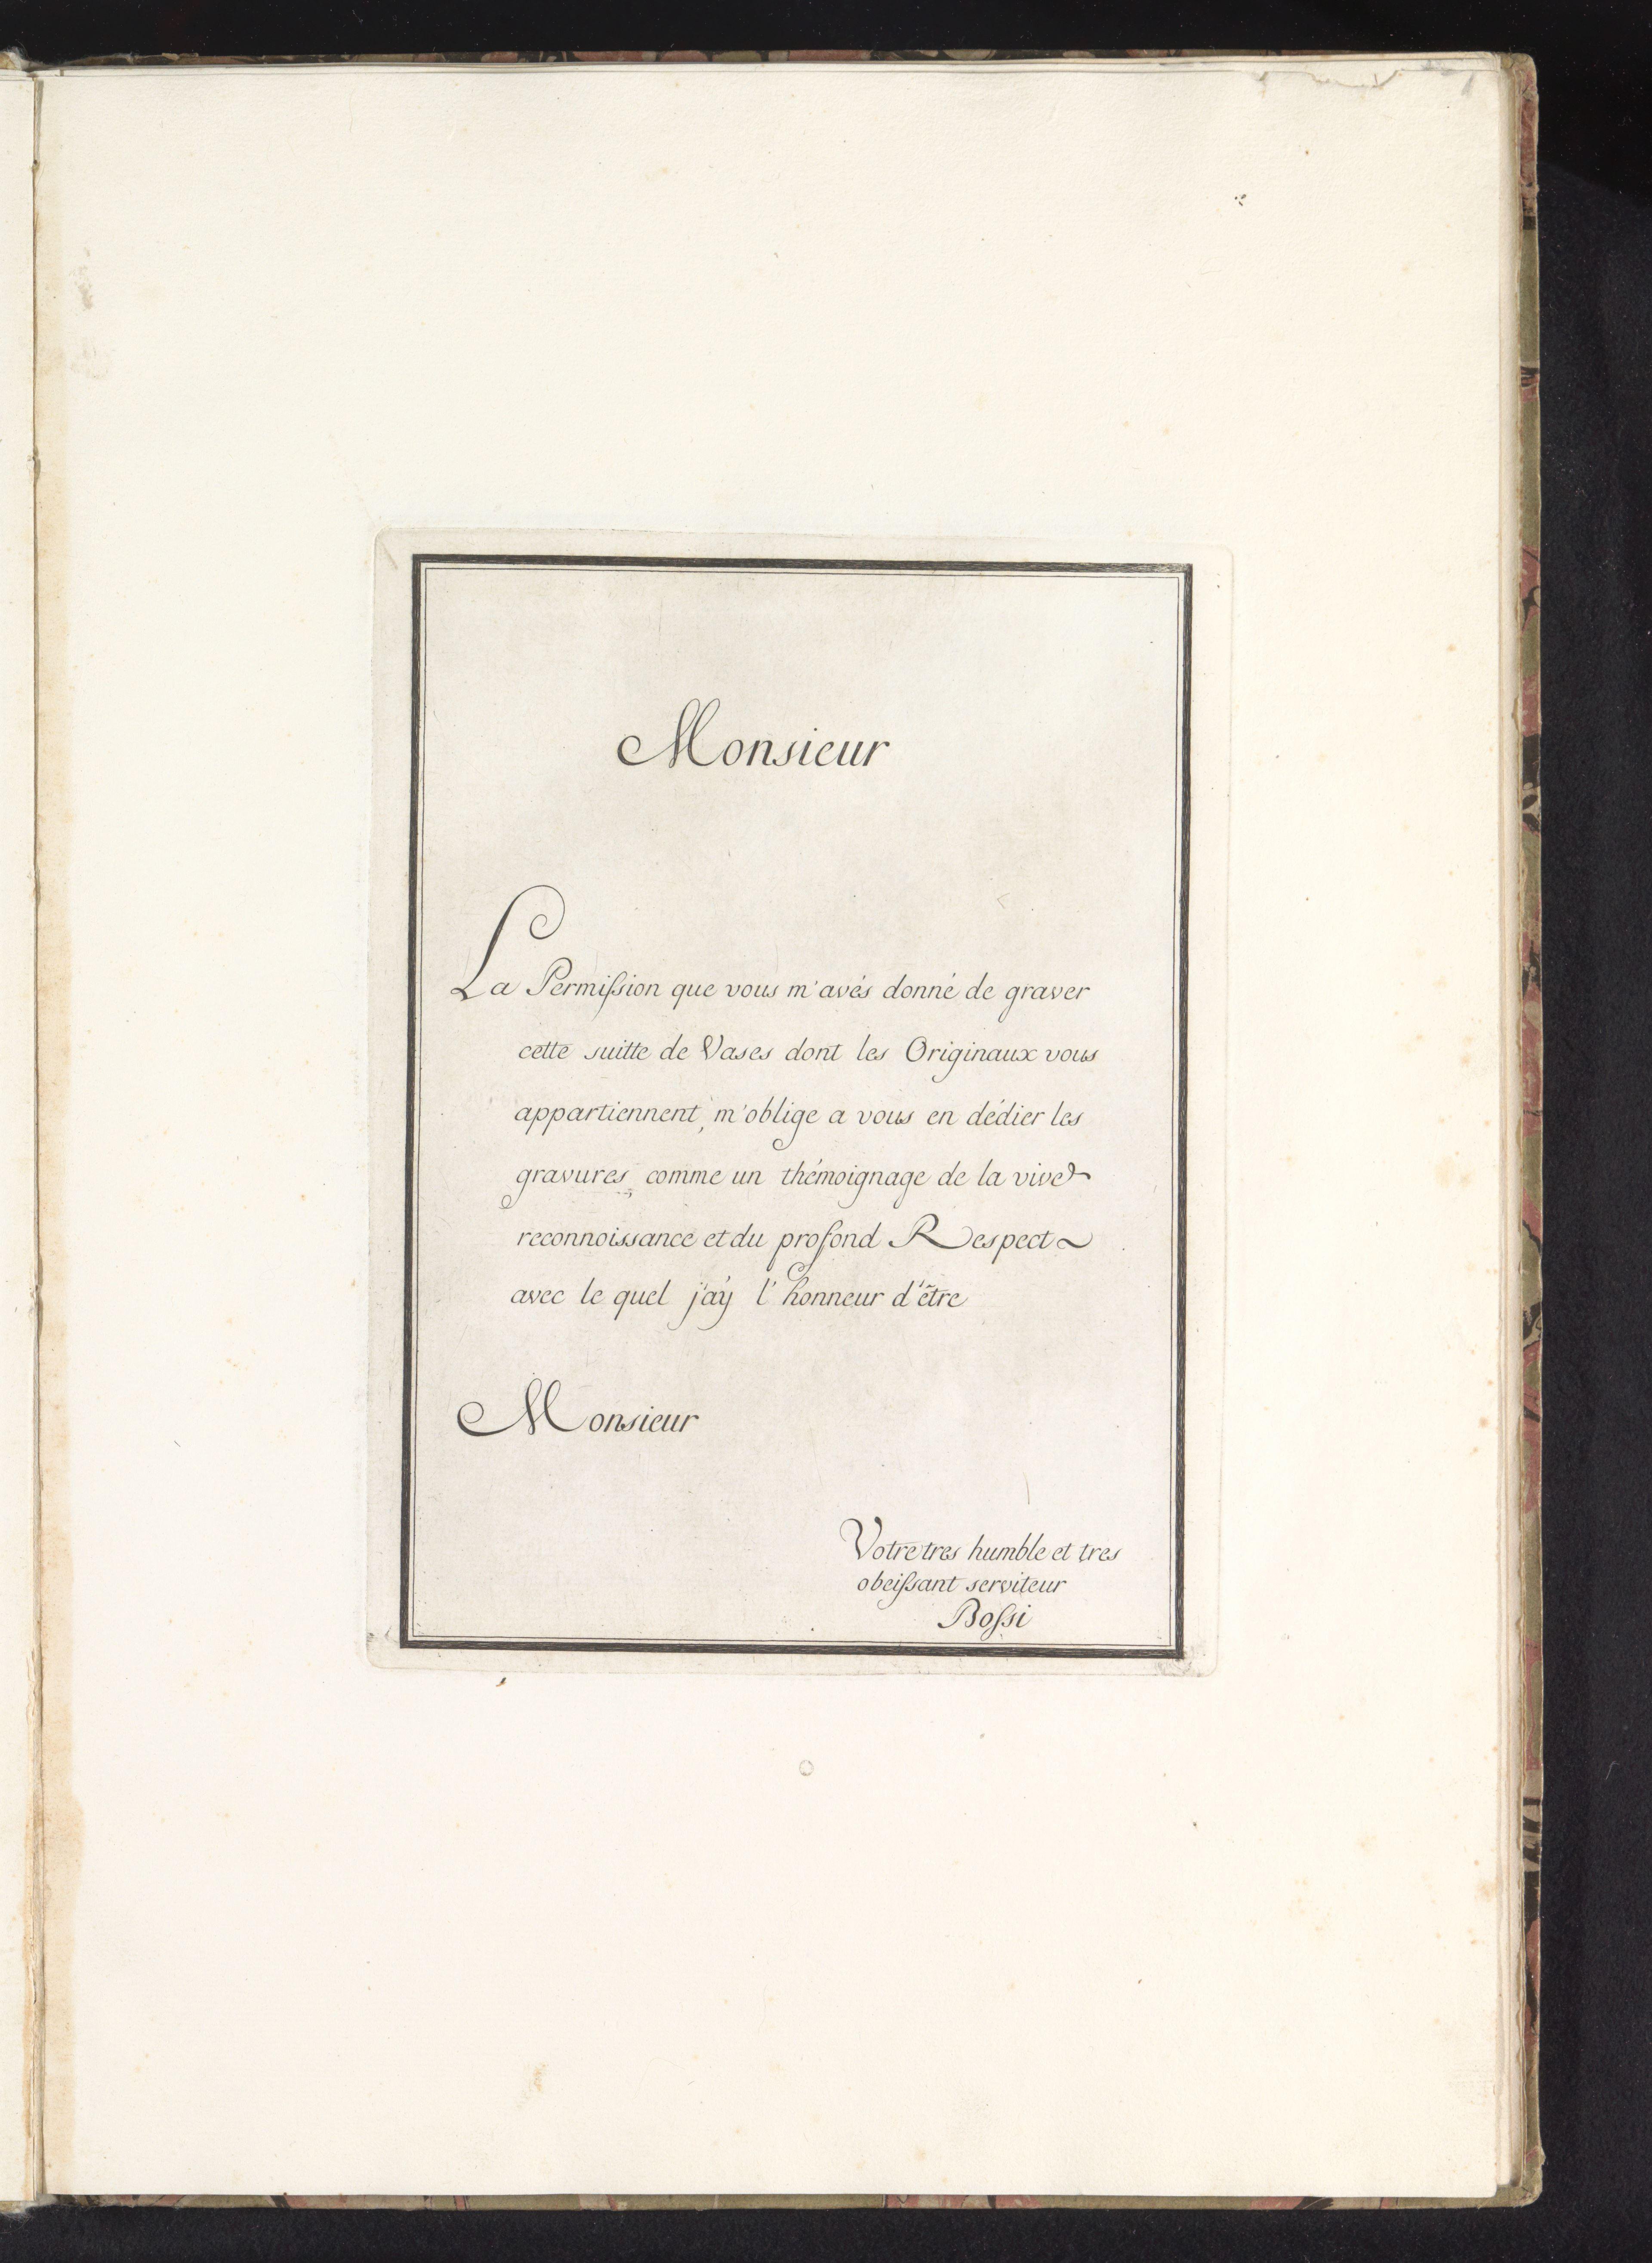 Monsieur
La Permiſsion que vous m'avés donné de graver
cette suitte de Vases dont les Originaux vous
appartiennent, m'oblige a vous en dédier les
gravures, comme un thémoignage de la vive
reconnoissance et du profond Respect
avec le quel j'aÿ l'honneur d'être
Monsieur
Votre tres humble et tres
obeiſsant serviteur
Boſsi